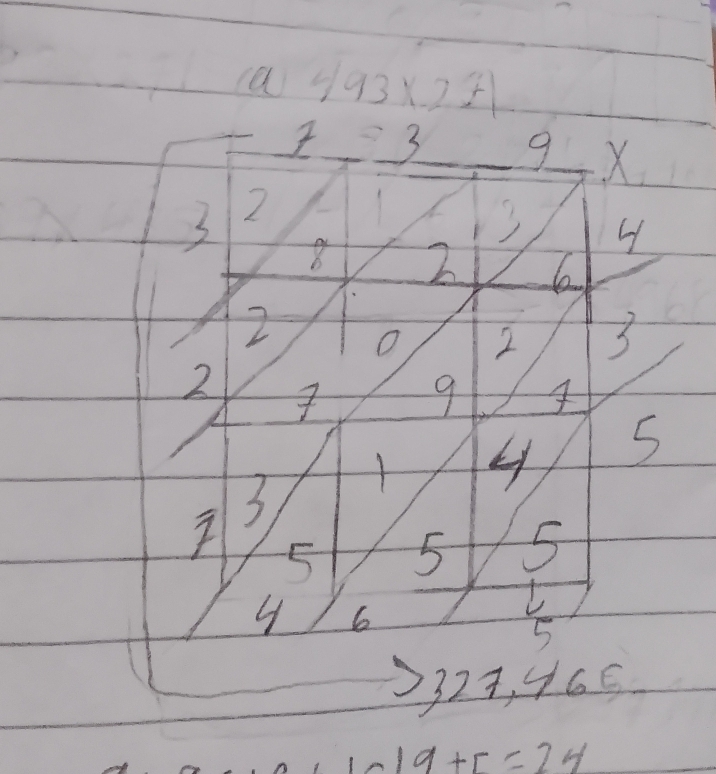 (a) 493 x 27
7 3 9 X
3 2 1 3 4
8 2 6
2 0 2 3
2 7 9 7
3 1 4 5
7 5 5 5
4 6 5
327,465
19+5=24